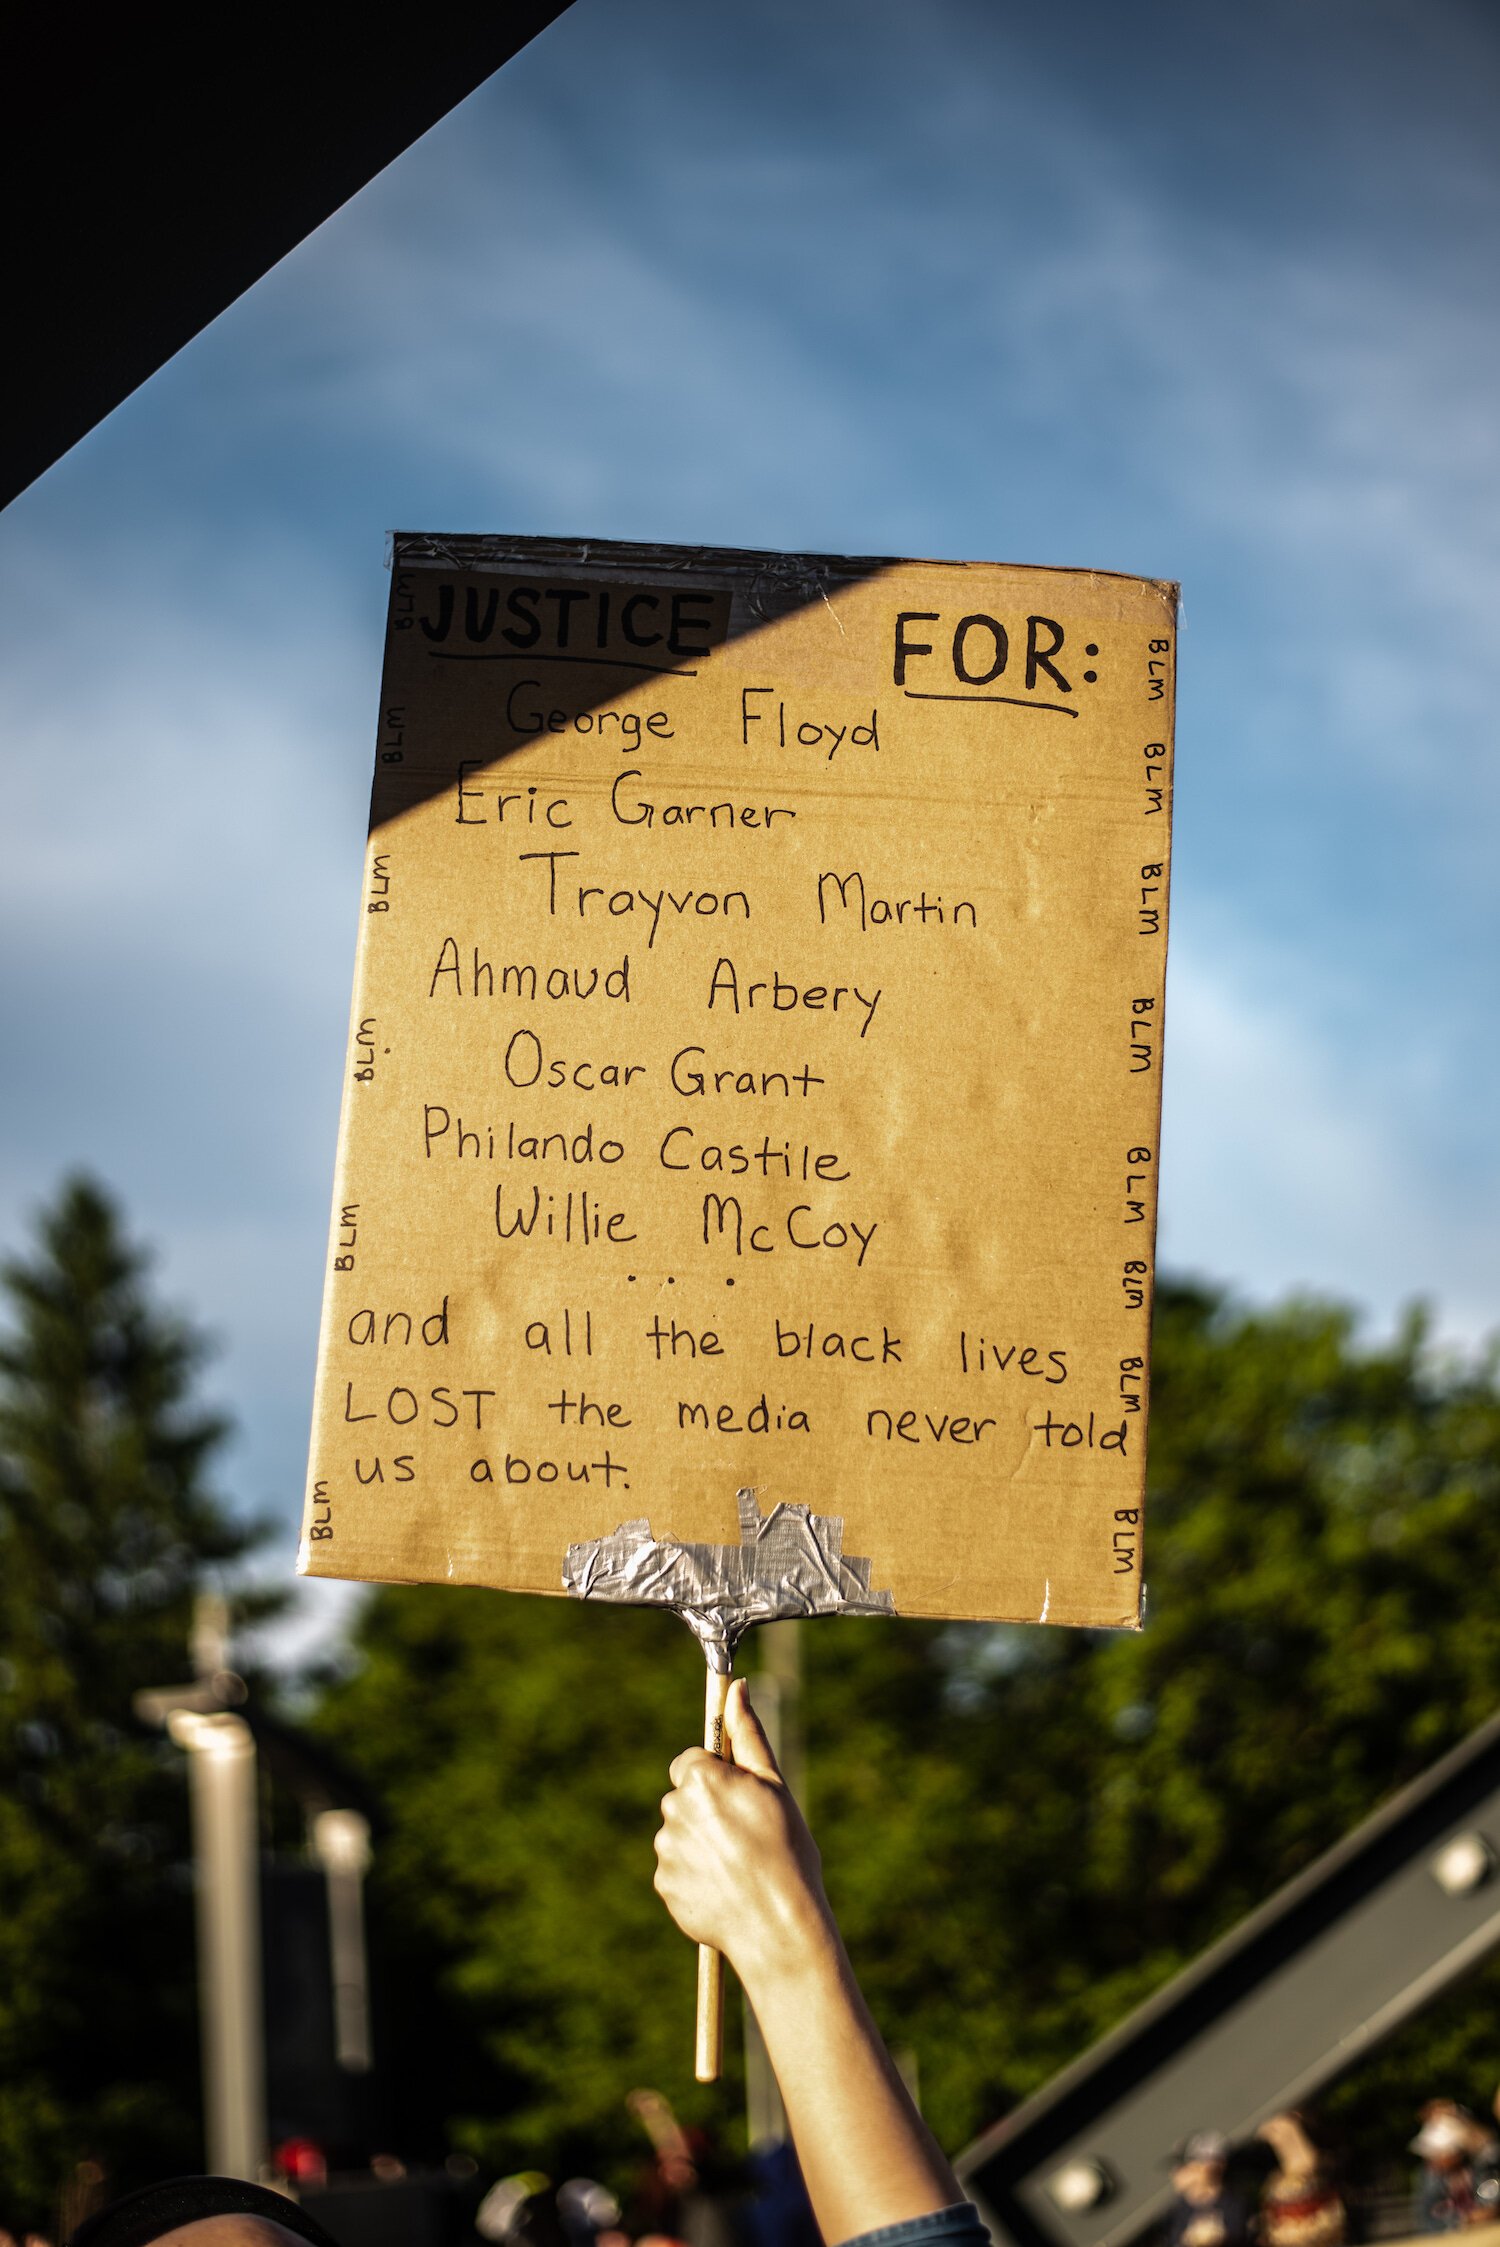 JUSTICE FOR:
George Floyd
Eric Garner
Trayvon Martin
Ahmaud Arbery
Oscar Grant
Philando Castile
Willie McCoy
...
and all the black lives
LOST the media never told
us about.
BLM
BLM
BLM
BLM
BLM
BLM
BLM
BLM
BLM
BLM
BLM
BLM
BLM
BLM